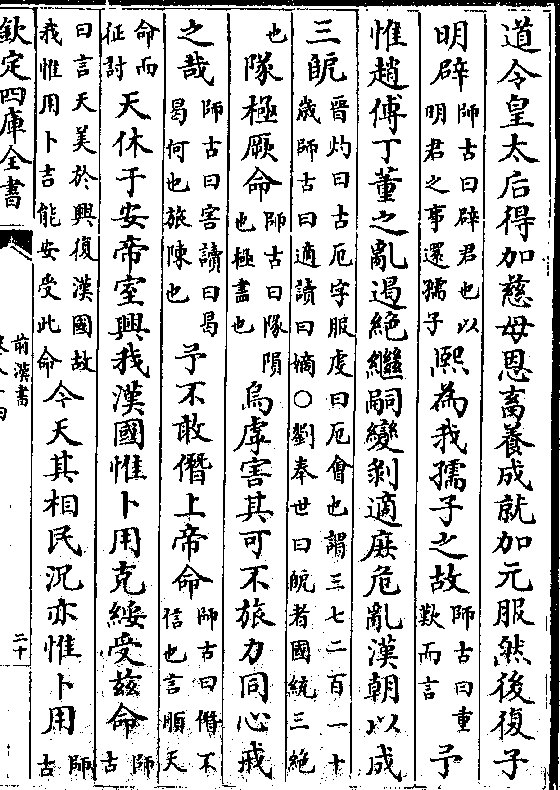 道令皇太后得加慈母恩畜養成就加元服然後復子
明辟師古曰辟君也以明君之事還孺子熙為我孺子之故師古曰重歎而言予
惟趙傅丁董之亂遏絕繼嗣變剥適庶危亂漢朝以成
三䣙晉灼曰古厄字服虔曰厄會也謂三七二百一十歲師古曰適讀曰嫡○劉奉世曰䣙者國統三絕
也隊極厥命師古曰隊隕也極盡也烏虖害其可不旅力同心戒
之哉師古曰害讀曰曷曷何也旅陳也予不敢僭上帝命師古曰僭不信也言順天
命而征討天休于安帝室興我漢國惟卜用克綏受兹命師古
曰言天美於興復漢國故我惟用卜吉能安受此命今天其相民況亦惟卜用師古
欽定四庫全書
前漢書
二十